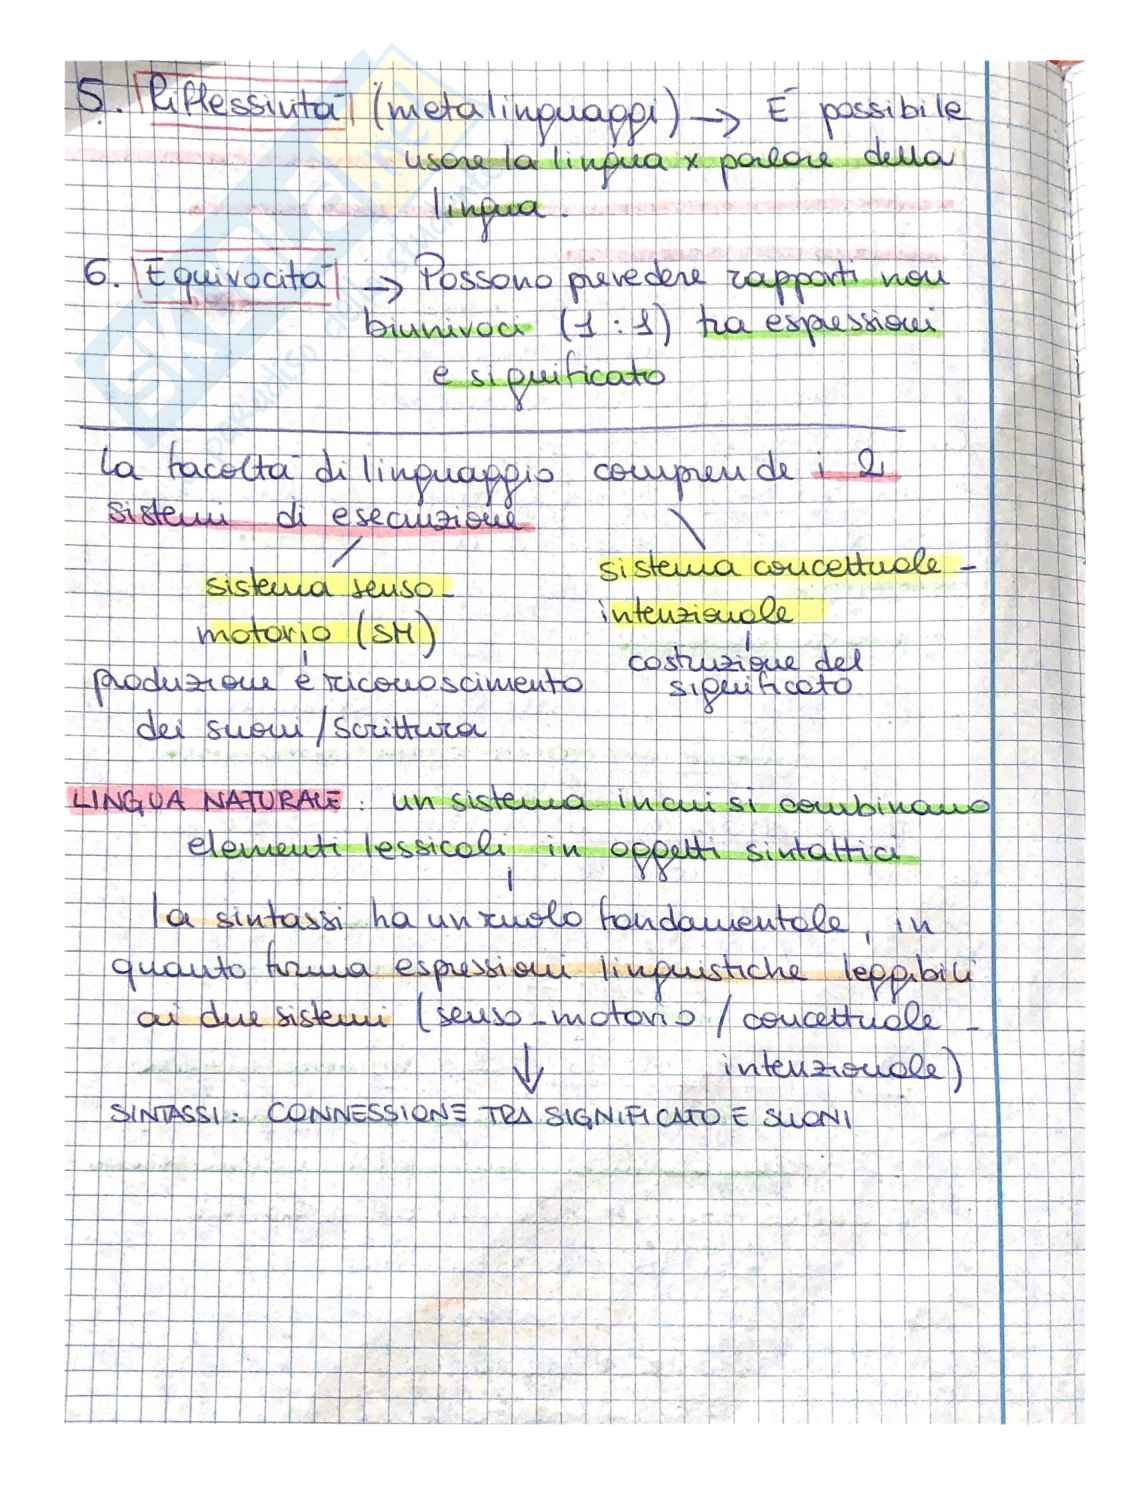 5. Riflessività (metalinguaggi) → È possibile
usare la lingua x parlare della
lingua.
6. Equivocità → Possono prevedere rapporti non
biunivoci (1 : 1) tra espressioni
e significato
La facoltà di linguaggio comprende i 2
sistemi di esecuzione
sistema senso-
motorio (SM)
produzione e riconoscimento
dei suoni/scrittura
sistema concettuale-
intenzionale
costruzione del
significato
LINGUA NATURALE: un sistema in cui si combinano
elementi lessicali in oggetti sintattici
la sintassi ha un ruolo fondamentale, in
quanto forma espressioni linguistiche leggibili
ai due sistemi (senso-motorio / concettuale-
intenzionale)
SINTASSI: CONNESSIONE TRA SIGNIFICATO E SUONI